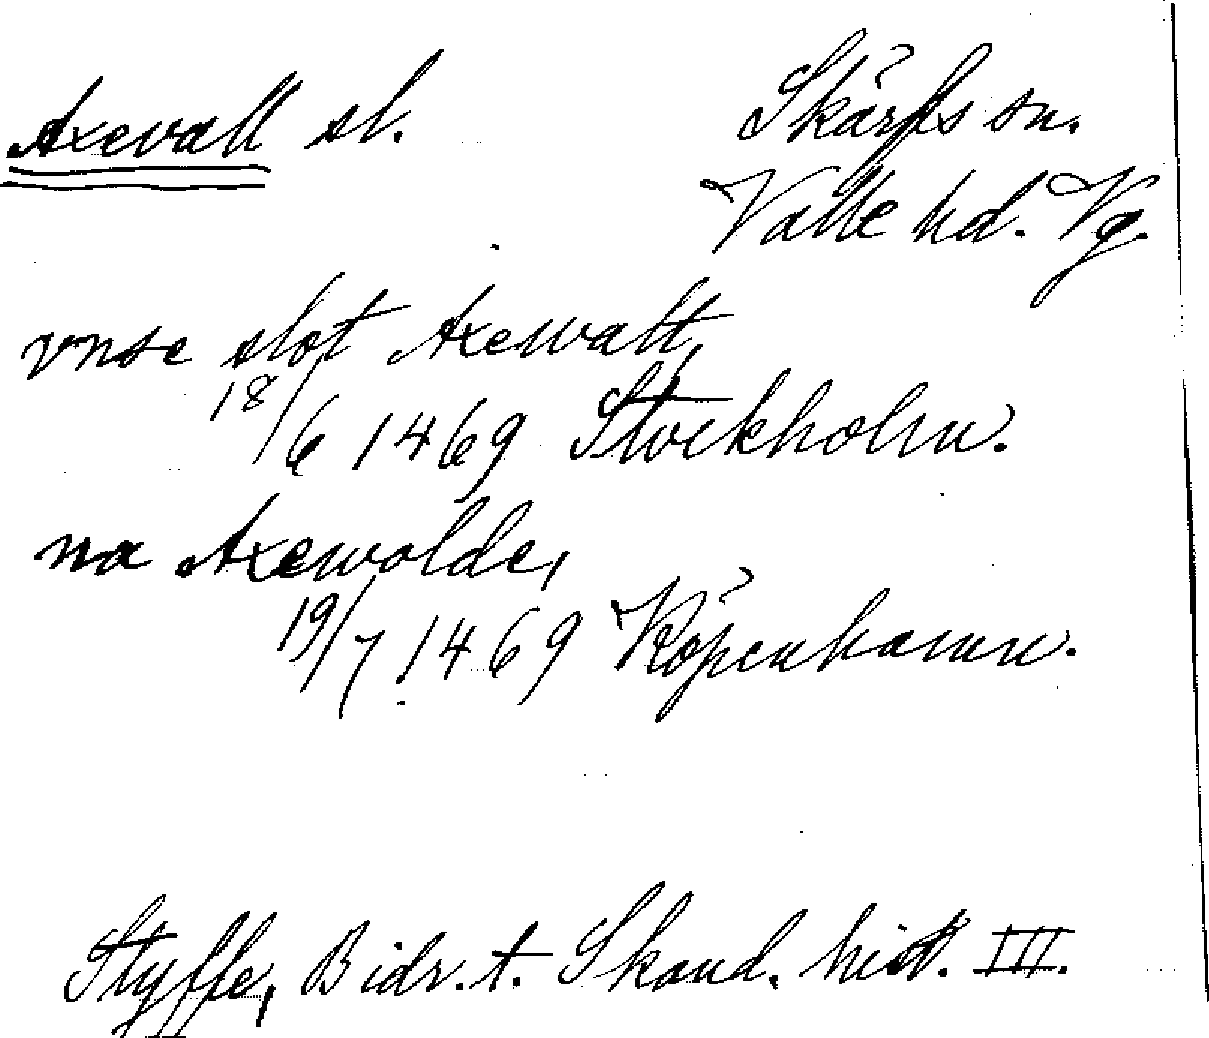 Axevall sl.
Skärfs sn.
Valle hd. Vg.
vnse slot Axewalt,
18/6 1469 Stockholm.
na Axewolde,
19/7 1469 Köpenhamn.
Styffe, Bidr. t. Skand. hist. III.